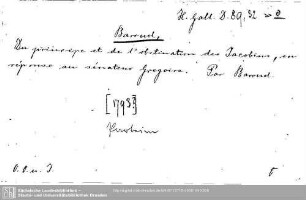 H. Gall. D. 89, 32
Baroud,
Du principe et de l'obstination des Jacobins, en
réponse au sénateur Gregoire. Par Baroud
[1795]
O. O. u. J.
Sächsische Landesbibliothek -
Staats- und Universitätsbibliothek Dresden